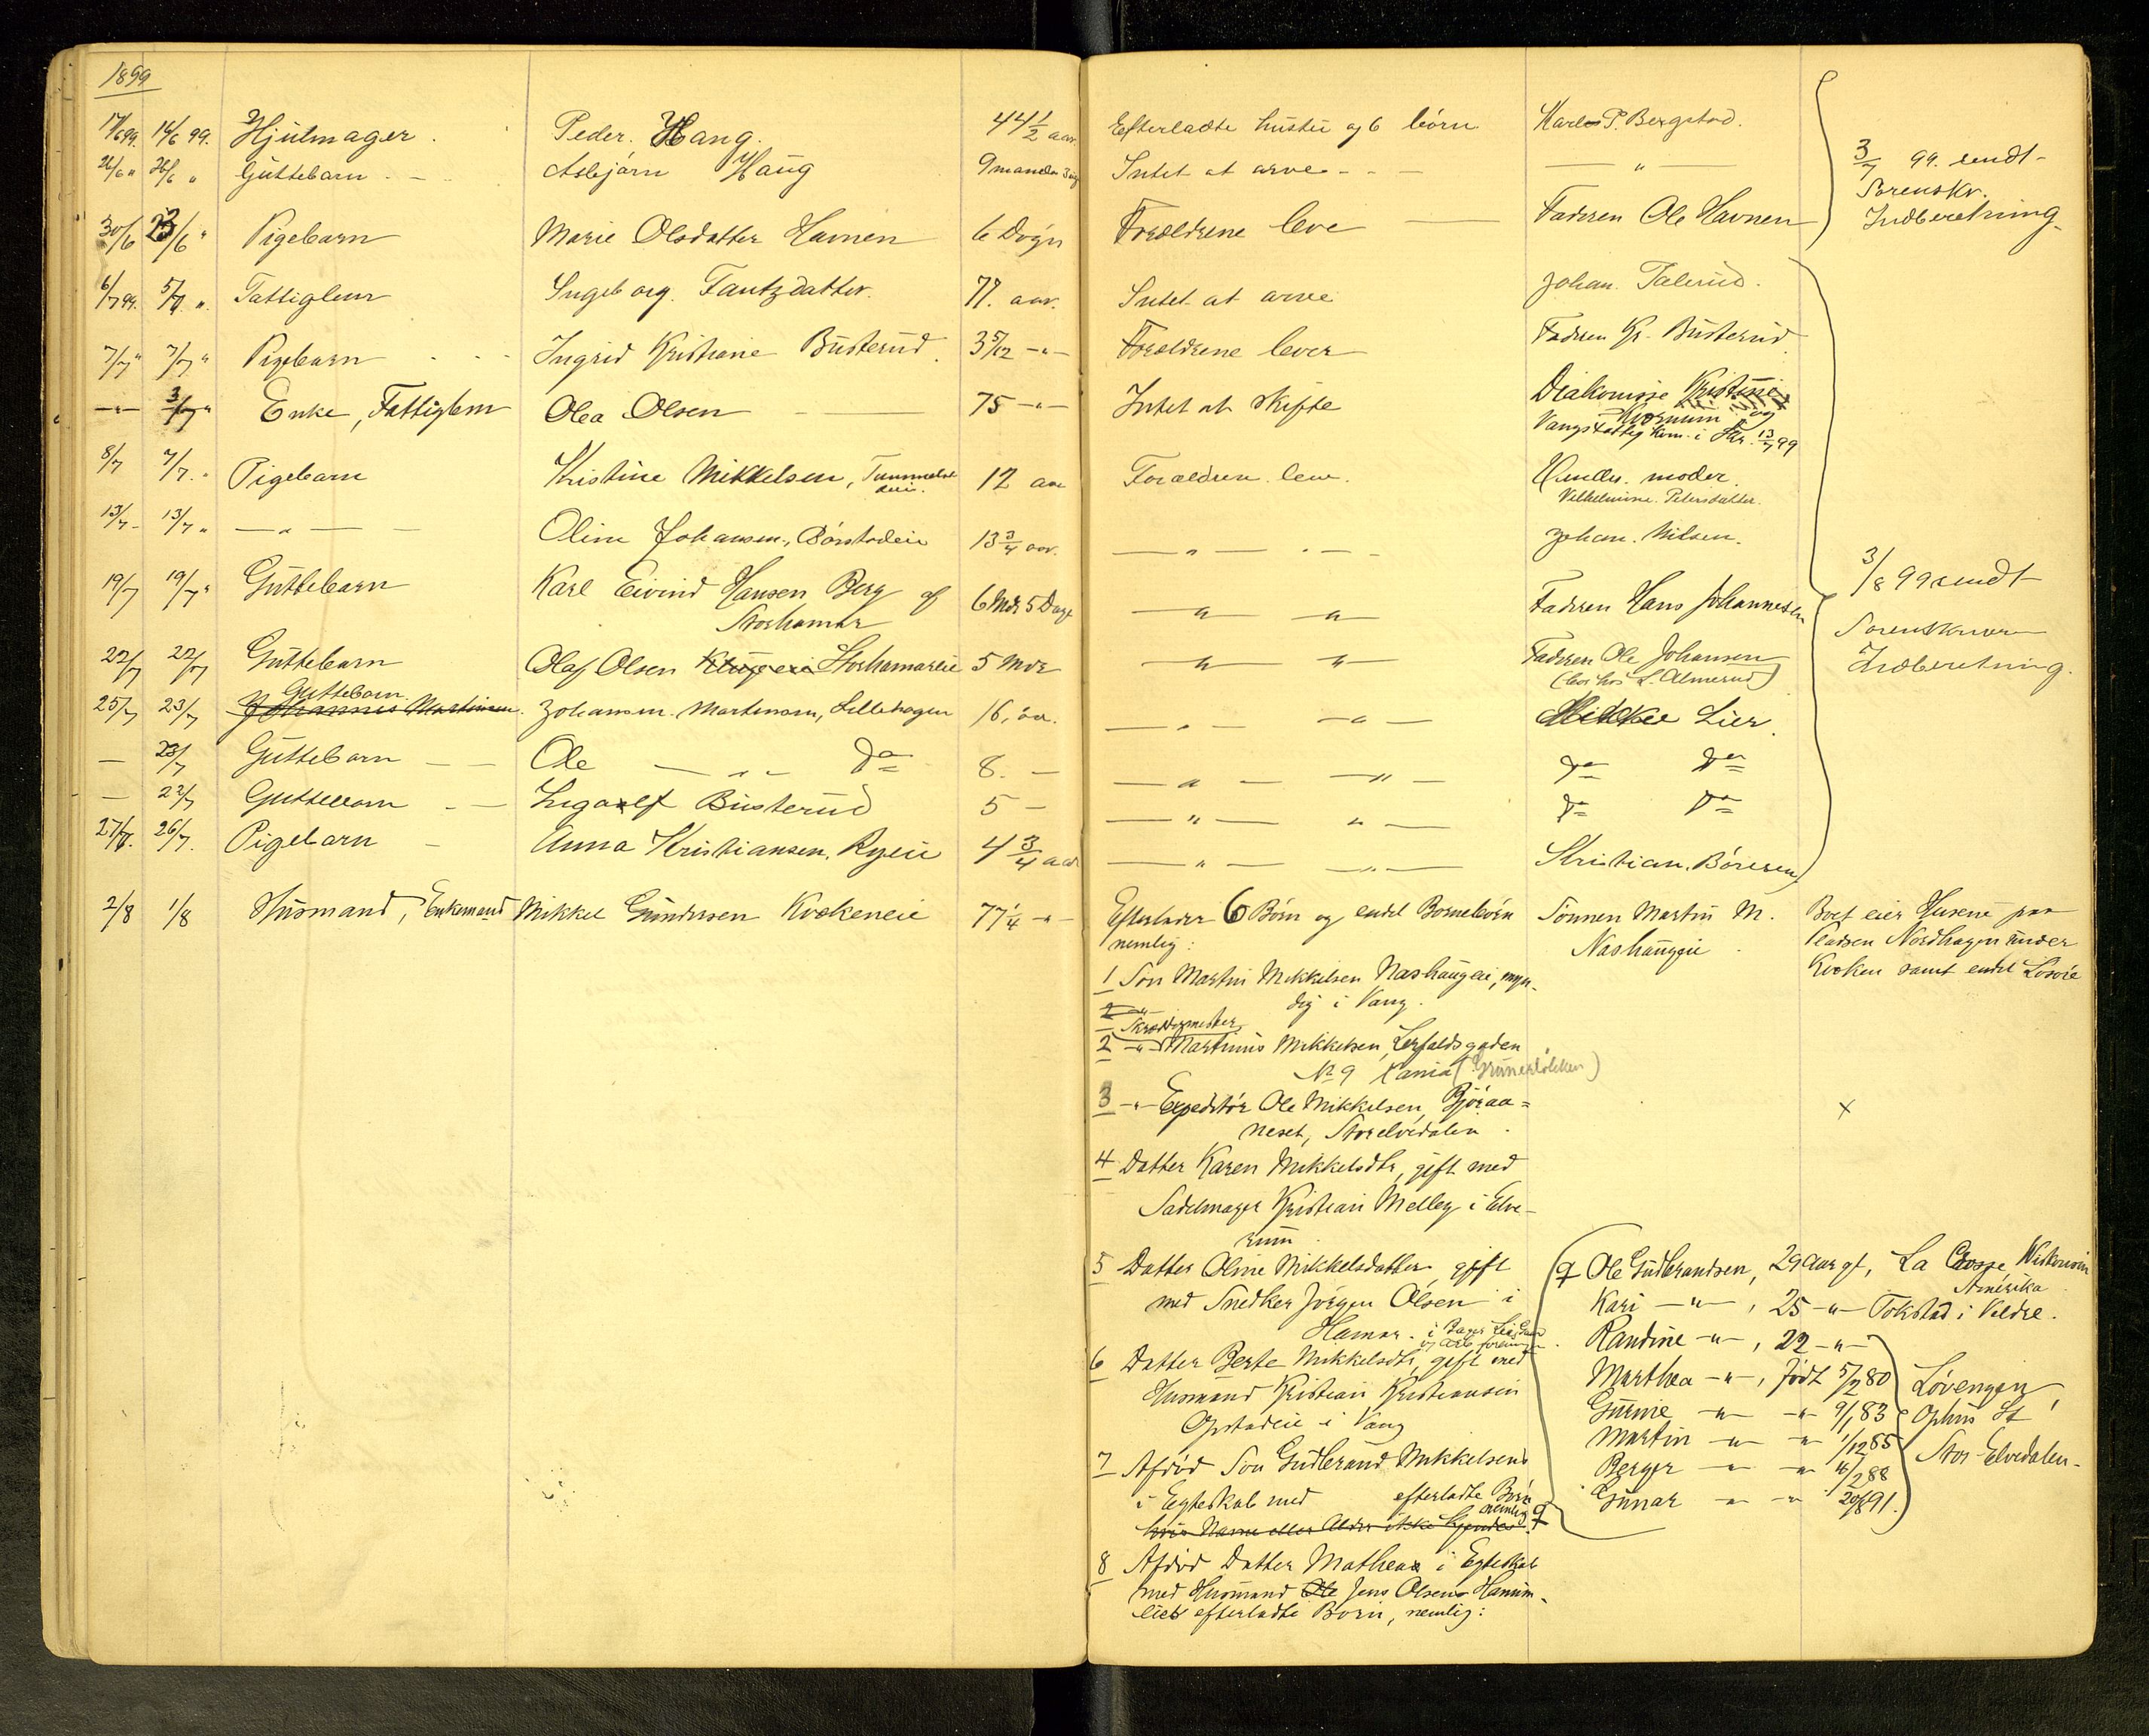 1899
17/6 99. 14/6 99. Hjulmager. Peder. Haug. 44 1/2 aar. Efterladte hustru og 6 børn Karl P. Bergstad.
26/6 " 26/6 " Guttebarn - - Asbjørn Haug 9 maaneder Intet at arve - - - — " —
3/7 99. sendt
Sorenskr.
Indberetning.
30/6 23/6 " Pigebarn Marie Olsdatter Havnen 6 Døgn Forældrene leve — Faderen Ole Havnen
6/7 99. 5/7 ". Fattiglem Ingeborg. Fantzdatter. 77. aar. Intet at arve Johan. Talerud.
7/7 " 7/7 " Pigebarn - - - Ingrid Kristiane Busterud. 3 5/12 -"- Forældrene lever Faderen Kr. Busterud
—"— 3/7 " Enke, Fattiglem Olea Olsen — 75 -"- Intet at skifte Diakonisse Kristine
Kværnum og
Vangs Fattigkom. i Skr. 13/7 99
8/7 7/7. " Pigebarn Kristine Mikkelsen, 12 aar Forældren leve. moder.
Vilhelmine. Petersdatter.
13/7 - 13/7 " — " — — Oline Johansen, Børstadeie 13 3/4 aar. — " — . — - Johan. Nilsen.
19/7 19/7 " Guttebarn Karl Eivind Hansen Berg af 6 Mdr 5 Dage — " — — " — Faderen Hans Johannesen
Storhamar
3/8 99 sendt
Sorenskriver
Indberetning.
22/7 22/7 Guttebarn Olaf Olsen Storhamareie 5 Mdr — " — — " — Faderen Ole Johansen
(bor hos L. Almerud)
Guttebarn.
25/7 23/7 Johannes Martinsen. Johansen. Martinsen, Lillehagen 16, aar. — " — — " — Mikkel Lier.
— 23/7 Guttebarn — — Ole — " - Do 8. — — " — — " — Do Do
— 22/7 Guttebarn - — Ingolf Busterud 5 — — " — " — Do Do
27/7. 26/7. Pigebarn - Anna Kristiansen. Ryeie 4 3/4 aar — " — — " — Kristian. Børresen
2/8 1/8 Husmand, Enkemand Mikkel Gundersen Kvækeneie 77 1/4 -"- Efterlader 6 Børn og endel Børnebørn Sønnen Martin M. Boet eier Husene paa
nemlig: Nashaugeie. Pladsen Nordhagen under
Kvæken samt endel Løsøre
1 Søn Martin Mikkelsen Nashaugeie, myn-
dig i Vang.
2 -"-
Skræddermester
2 -"- Martinus Mikkelsen, Lerfaldsgaden
No 9 Xania (Grünerløkken)
3 -"- Expeditør Ole Mikkelsen, Bjøraa=
neset, Storelvedalen. x
4 Datter Karen Mikkelsdtr, gift med
Sadelmager Kristian Melley i Elve-
rum.
5 Datter Oline Mikkelsdatter, gift
med Snedker Jørgen Olsen i
Hamar.
6 Datter Berte Mikkelsdtr, gift med
Husmand Kristian Kristiansen
Opstadeie i Vang
7 Afdød Søn Gudbrand Mikkelsens
i Egteskab med efterladte Børn
nemlig
hvis Navne eller Alder ikke kjendes.
8 Afdød Datter Matheas i Egteskab
med Husmand Ole Jens Olsens Hanum-
eies efterladte Børn, nemlig:
Ole Gudbrandsen, 29 Aar gl, La Crosse, Wiskonsin
Amerika
Kari —"—, 25 -"- Tokstad i Veldre.
Randine -"-, 22 -"-
Marthea -"-, født 5/2 80
Gurine -"- -"- 9/1 83
Martin -"- -"- 1/12 85
Berger -"- -"- 16/2 88
Gunar -"- -"- 20/8 91.
Løvengen,
Ophus St
Stor-Elvedalen-